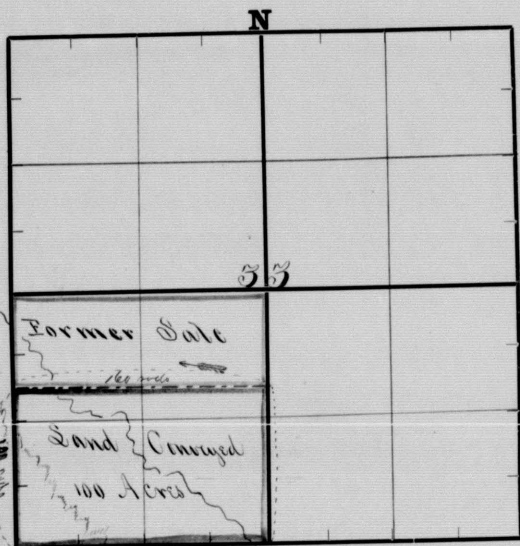 N
33
Former Sale
160 rods
Land Conveyed
100 Acres